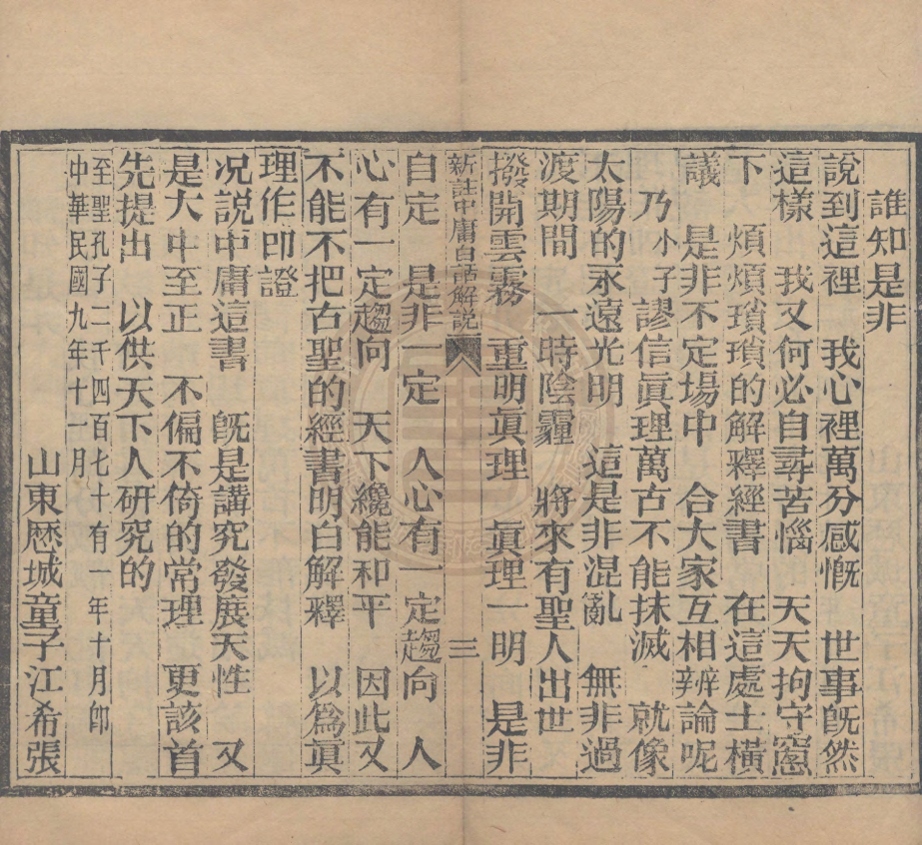 誰知是非
說到這裡　我心裡萬分感慨　世事旣然
這樣　我又何必自尋苦惱　天天拘守窻
下　煩煩瑣瑣的解釋經書　在這處士橫
議　是非不定場中　合大家互相辨論呢
乃小子謬信眞理萬古不能抹滅　就像
太陽的永遠光明　這是非混亂　無非過
渡期間　一時陰霾　將來有聖人出世
撥開雲霧　重明眞理　眞理一明　是非
新註中庸白話解說　三
自定　是非一定　人心有一定趨向　人
心有一定趨向　天下纔能和平　因此又
不能不把古聖的經書明白解釋　以爲眞
理作印證
况說中庸這書　旣是講究發展天性　又
是大中至正　不偏不倚的常理　更該首
先提出　以供天下人研究的
至聖孔子二千四百七十有一年十月卽
中華民國九年十一月
山東歷城童子江希張